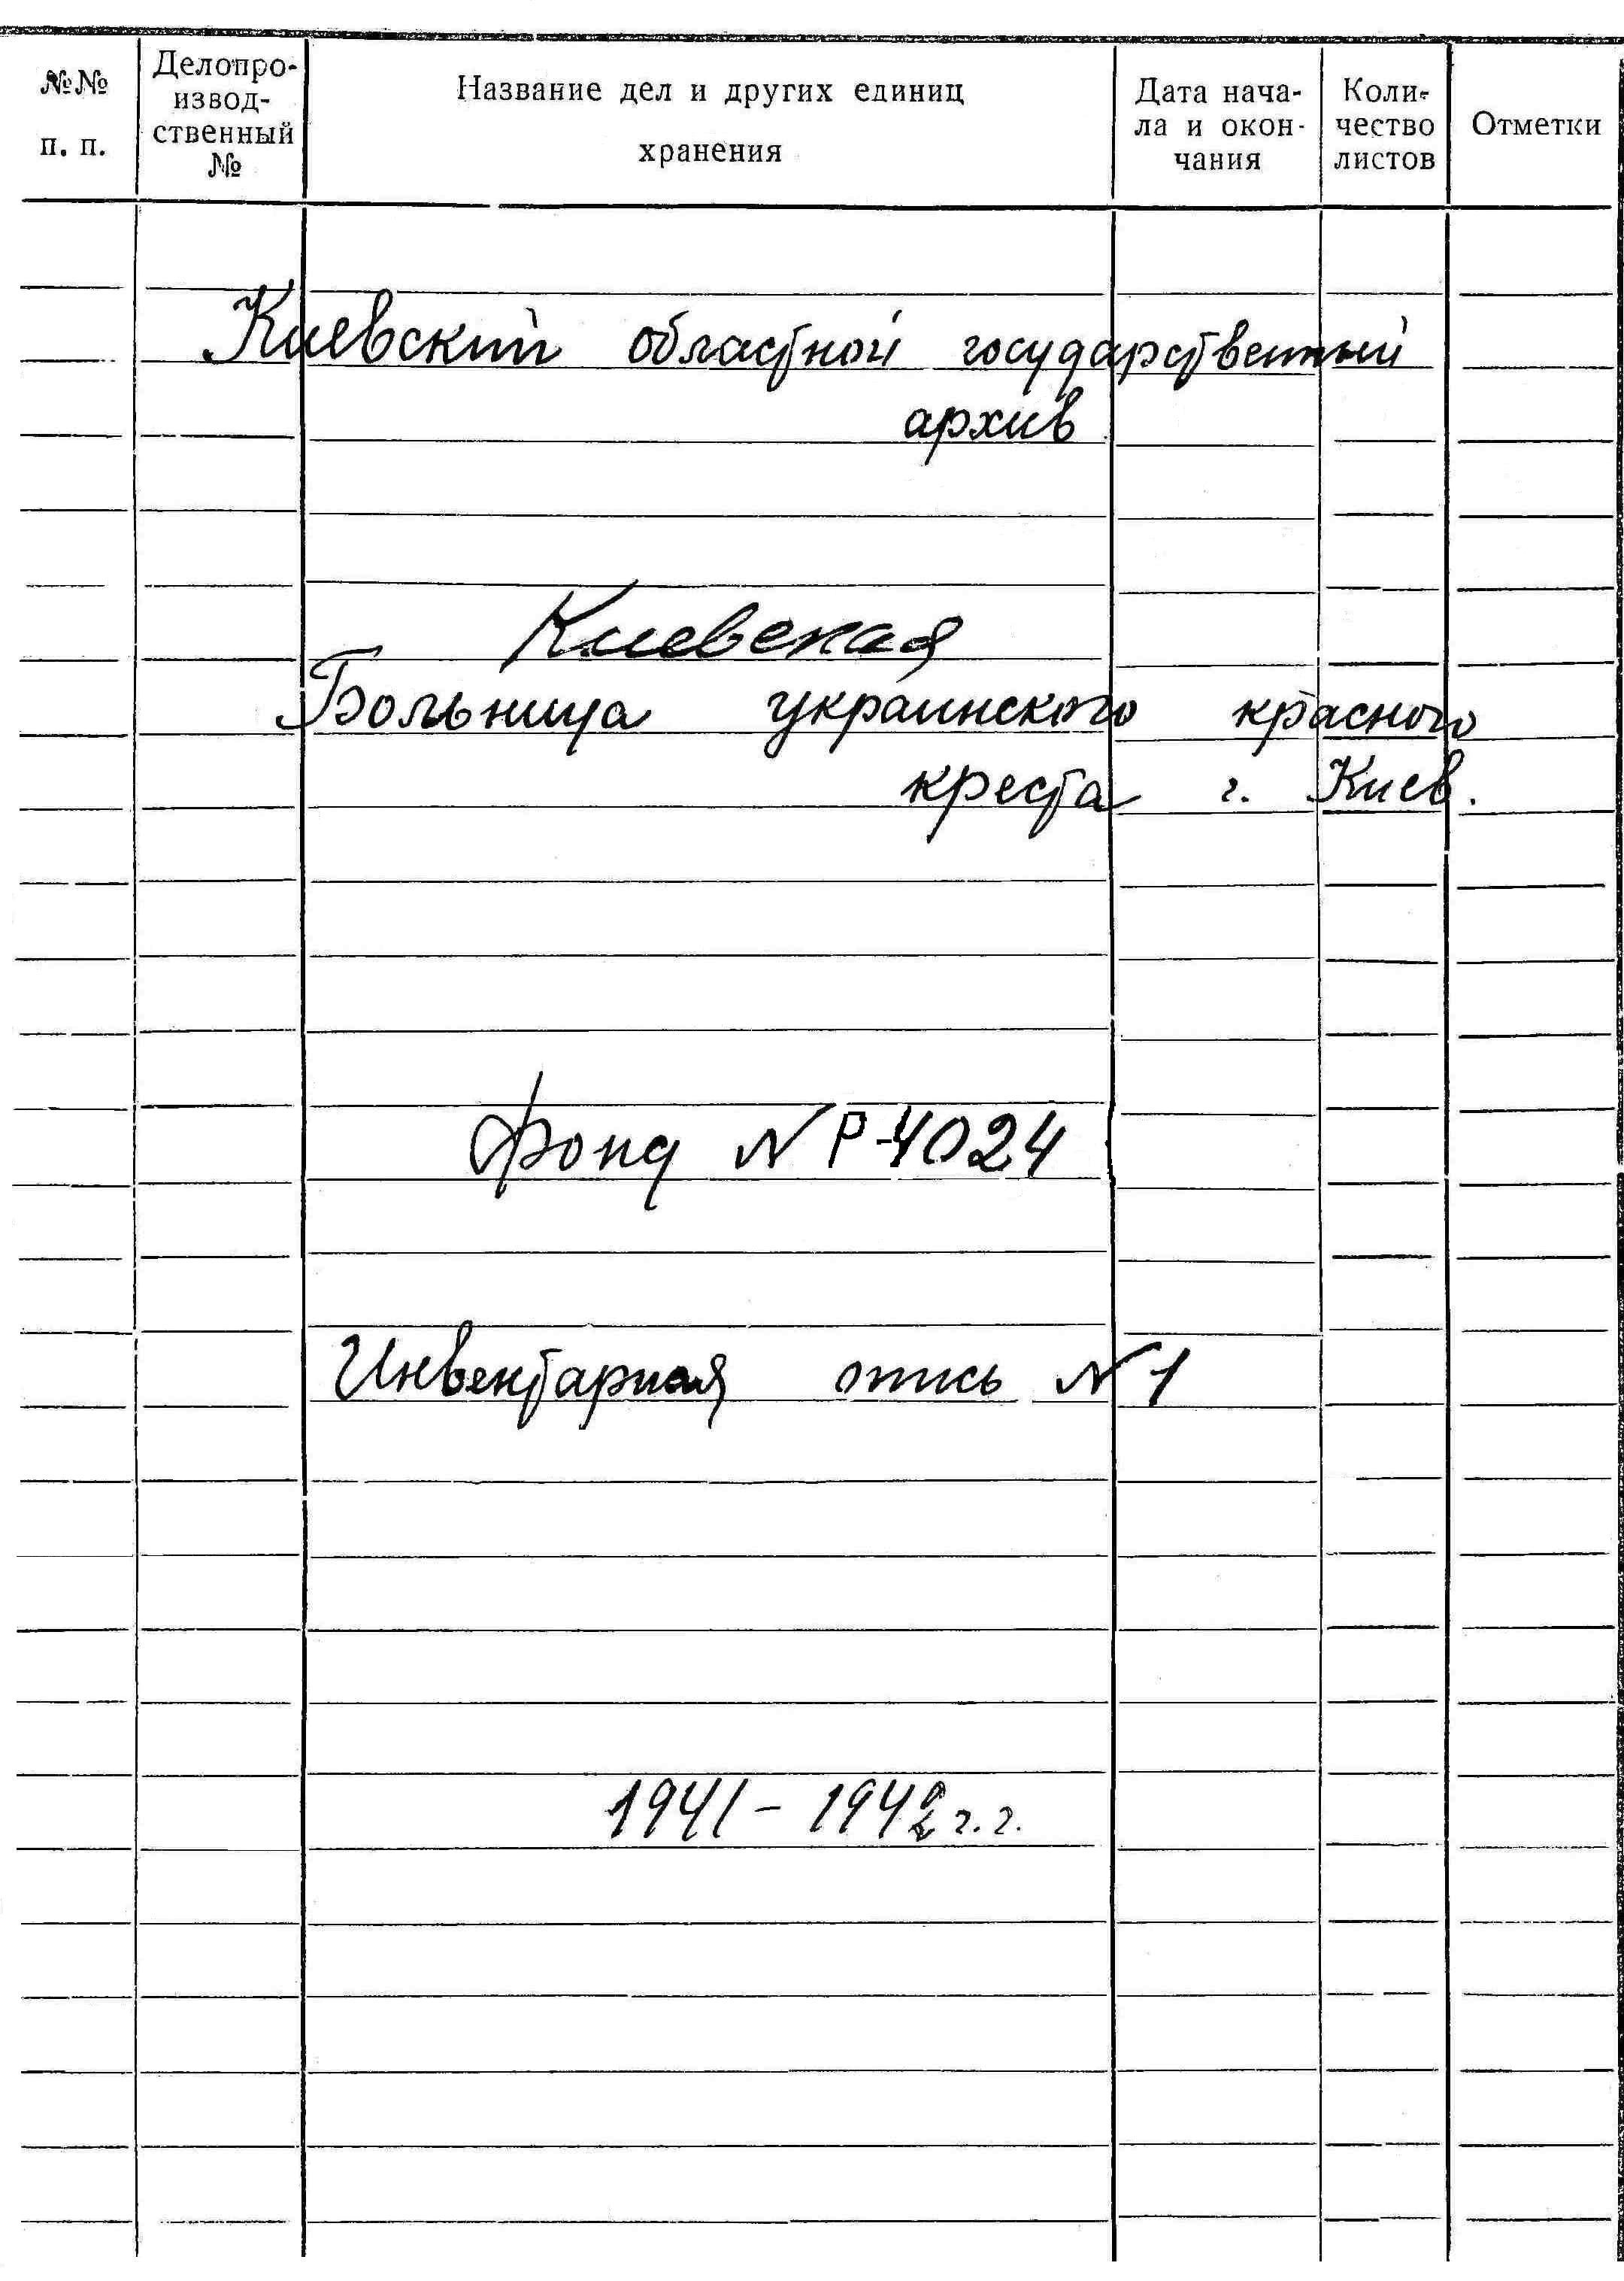 №№
п. п.
Делопро-
извод-
ственный
№
Название дел и других единиц
хранения
Дата нача-
ла и окон-
чания
Коли-
чество
листов
Отметки
Киевский областной государственный
архив
Киевская
Больница украинского красного
креста г. Киев.
Фонд N Р-4024
Инвентарная опись N 1
1941 - 1942 г. г.